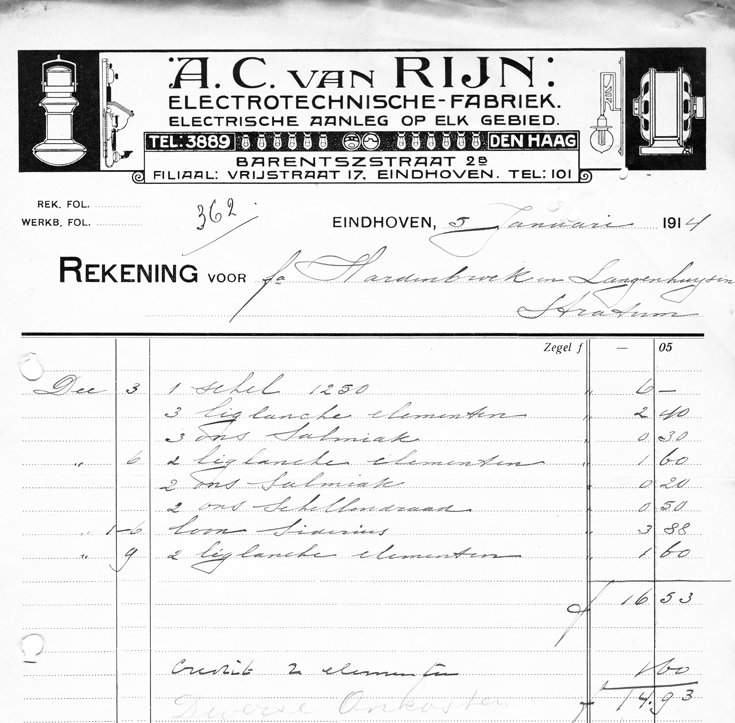 A. C. VAN RIJN
ELECTROTECHNISCHE-FABRIEK.
ELECTRISCHE AANLEG OP ELK GEBIED.
TEL: 3889 DEN HAAG
BARENTSZSTRAAT 2B
FILIAAL: VRIJSTRAAT 17, EINDHOVEN. TEL: 101
REK. FOL.
WERKB. FOL.
362.
EINDHOVEN, 5 Januari 1914
REKENING VOOR fa Hardenbroek en Langenhuysin
Stratum
Zegel f — 05
Dec 3 1 schel 1250 " 6 —
3 liglanche elementen " 2 40
3 ons Salmiak " 0 30
" 6 2 liglanche elementen " 1 60
2 ons Salmiak " 0 20
2 ons Schellendraad " 0 50
" 1-6 loon Siderius " 3 88
" 9 2 liglanche elementen " 1 60
f 16 53
Credit 2 elementen 1 60
f 14.93
Diverse Onkosten